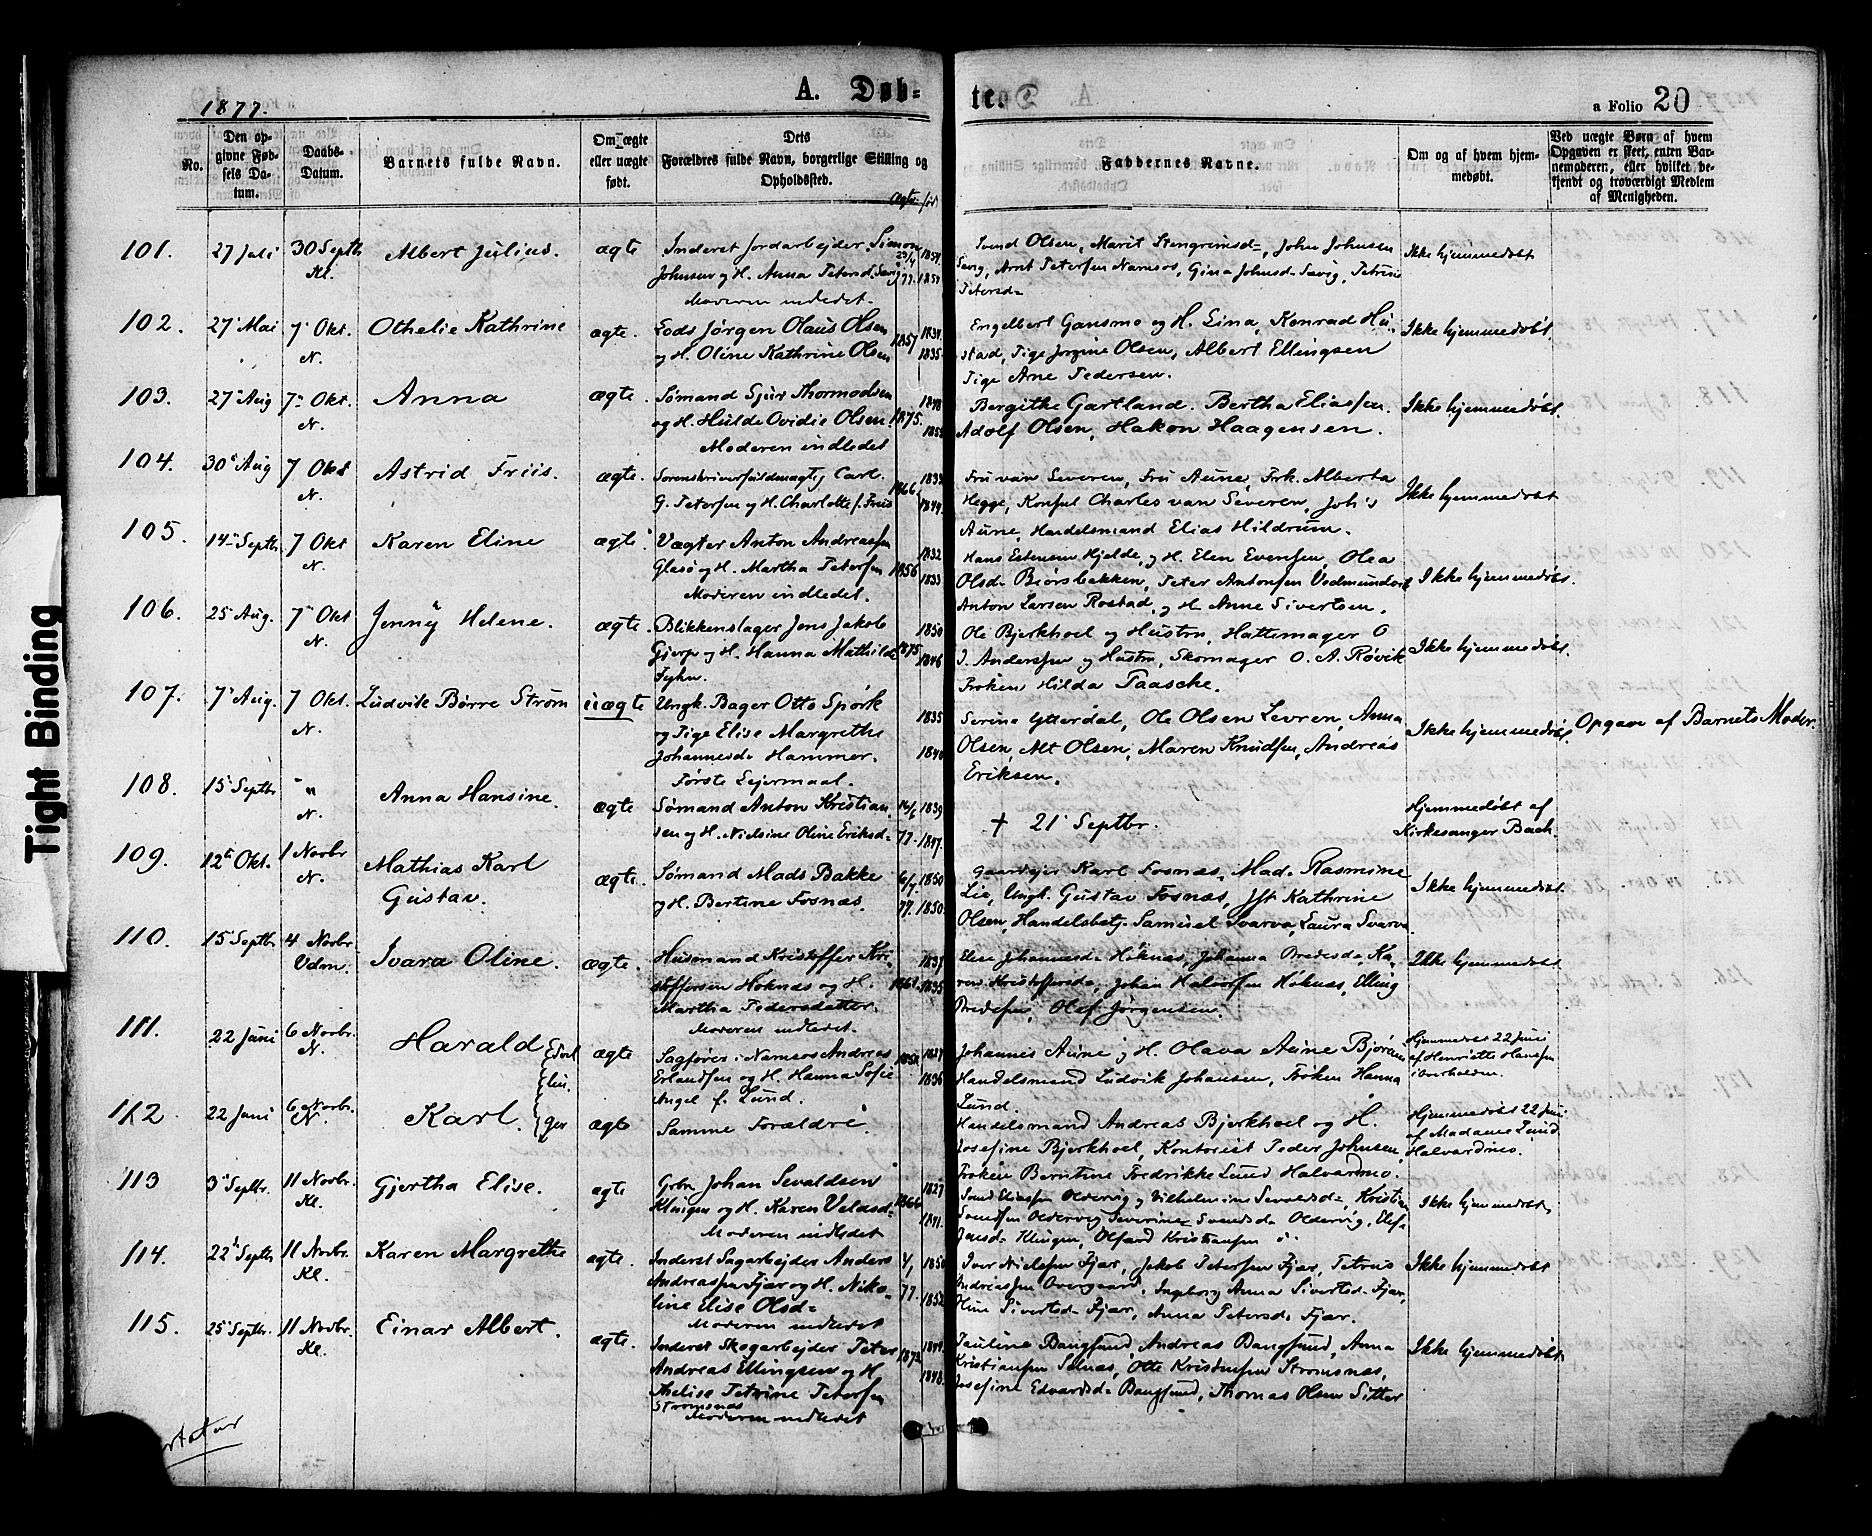 1877.
A. Døb-
te.
a Folio 20
No.
Den op-
givne Fød-
sels Da-
tum.
Daabs-
Datum.
Barnets fulde Navn.
Om ægte
eller uægte
født.
Dets
Forældres fulde Navn, borgerlige Stilling og
Opholdssted.
Faddernes Navne.
Om og af hvem hjem-
medøbt.
Ved uægte Børn af hvem
Opgaven er skeet, enten Bar-
nemoderen, eller hvilket be-
kjendt og troværdigt Medlem
af Menigheden.
101.
27 Juli
30 Septbr
Kl.
Albert Julius.
ægte
Inderst Jordarbejder Simon
Johnsen og H. Anna Petersd. Savig
Moderen indledet.
29/4
77.
1854
Svend Olsen, Marit Stengrimsd=, John Johnsen
Savig, Arnt Petersen Namsos, Gina Johnsd= Savig, Petrine
Petersd=
Ikke hjemmedøbt
102.
27 Mai
7 Okt.
N.
Othelie Kathrine
ægte.
Lods Jørgen Olaus Olsen
og H. Oline Kathrine Olsen
1857
1834.
1835.
Engelbert Gansmo og H. Lina, Konrad Hu-
stad, Pige Jorgine Olsen, Albert Ellingsen
Pige Arne Pedersen.
Ikke hjemmedøbt.
103.
27 Aug
7 Okt.
N.
Anna
ægte.
Sømand Sjur Thormodsen
og H. Hulde Ovidie Olsen
Moderen indledet
1875.
1848
Bergithe Gartland. Bertha Eliassen.
Adolf Olsen, Hakon Haagensen.
Ikke hjemmedøbt.
104.
30 Aug
7 Okt
N.
Astrid Friis.
ægte.
Sorenskriverfuldmægtig Carl
G. Petersen og H. Charlotte f. Friis
1866
1833
1844.
Fru van Severen, Fru Aune, Frk. Alberta
Hegge, Konsul Charles van Severen, Joh's
Aune, Handelsmand Elias Hildrum.
Ikke hjemmedøbt
105.
14 Septbr.
7 Okt
N.
Karen Eline
ægte
Vægter Anton Andreassen
Glasø og H. Martha Petersen
Moderen indledet.
1856
1832
1833
Hans Estensen Hjelde, og H. Elen Evensen, Olea
Olsd= Biørsbakken, Peter Antonsen Vedmundvik
Anton Larsen Rostad, og H. Anne Sivertsen.
Ikke hjemmedøbt.
106.
25 Aug.
7 Okt
N.
Jenny Helene.
ægte.
Blikkenslager Jens Jakob
Gjerp og H. Hanna Mathilde
1875
1850
1846
Ole Bjerkhoel og Hustru, Hattemager O
J. Anderssen og Hustru, Skomager O. A. Røvik
Frøken Hilda Paasche.
Ikke hjemmedøbt.
107.
7 Aug.
7 Okt.
N.
Ludvik Børre Strøm
uægte
Ungk. Bager Otto Spørk
og Pige Elise Margrethe
Johannesd= Hammer.
Første Lejermaal.
1835
1840
Serina Ytterdal, Ole Olsen Levren, Anna
Olsen, Alt Olsen, Maren Knudsen, Andreas
Eriksen.
Ikke hjemmedøbt.
Opgave af Barnets Moder.
108.
15 Septbr
"
N.
Anna Hansine.
ægte
Sømand Anton Kristian-
sen og H. Nielsine Oline Eriksd=
16/6
77.
1839
1847.
† 21 Septbr.
Hjemmedøbt af
Kirkesanger Bach.
109.
12 Okt.
1 Novbr
N.
Mathias Karl
Gustav.
ægte.
Sømand Mads Bakke
og H. Bertine Fosnæs.
6/7
77.
1850
1850.
Gaardejer Karl Fosnæs, Mad. Rasmine
Lie, Ungk. Gustav Fosnæs, Jft Kathrine
Olsen, Handelsbetj. Samuel Svarva, Laura Svarva.
Ikke hjemmedøbt.
110.
15 Septbr
4 Novbr
Vdm.
Ivara Oline.
ægte.
Husmand Kristoffer Kri-
stoffersen Høknæs og H.
Martha Pedersdatter.
Moderen indledet.
1835
Elise Johannesd= Høknæs, Johanna Bredesd=, Ka-
ren Kristoffersd=, Johan Halvorsen Høknæs, Elling
Bredesen, Olef Jørgensen.
Ikke hjemmedøbt
111.
22 Juni
6 Novbr.
N.
Harald
ægte
Sagfører i Namsos Andreas
Erlandsen og H. Hanna Sofie
Angel f. Lund.
1827
1836
Johannes Aune og H. Olava Aune Bjørum
Handelsmand Ludvik Johansen, Frøken Hanna
Lund.
Hjemmedøbt 22 Juni
af Henriette Hanssen
112
22 Juni
6 Novbr.
N.
Karl.
ægte
Samme Forældre
Handelsmand Andreas Bjerkhoel og H.
Josefine Bjerkhoel, Kontorist Peder Johnsen,
Frøken Berntine Fredrikke Lund Halvardmo.
Hjemmedøbt 22 Juni
af Madame Lund
Halvardmo.
113
3 Septbr.
11 Novbr.
Kl.
Gjertha Elise.
ægte
Grbr. Johan Sevaldsen
Klingen og H. Karen Veldsd=
Moderen indledet
1866
1827
1841.
Svend Eliassen Oldervig og Vilhelmine Sevaldsd=, Kristian
Svendsen Oldervig, Severine Svendsd= Oldervig, Elise
Jansd= Klingen, Olfard Kristiansen
Ikke hjemmedøbt.
114.
22 Septbr
11 Novbr.
Kl.
Karen Margrethe
ægte.
Inderst Sagarbejder Anders
Andreassen Fjær og H. Niko-
line Elise Olsd=
Moderen indledet
77.
1850
1852
Iver Nielsen Fjær, Jakob Petersen Fjær, Petrus
Andreassen Overgaard, Ingeborg Anna Sivertsd= Fjær,
Oline Sivertsd= Fjær, Anna Petersd= Fjær.
Ikke hjemmedøbt
115.
25 Septbr.
11 Novbr.
Kl.
Einar Albert.
ægte.
Inderst Skogarbejder Peter
Andreas Ellingsen og H
Thelise Petrine Petersen
Strømsnæs
Moderen indledet
1848.
Pauline Bangsund, Andreas Bangsund, Anna
Kristiansen Selnæs, Otte Kristensen Strømsnæs,
Josefine Edvardsd= Bangsund, Thomas Olsen Sitter
Ikke hjemmedøbt.
Tight Binding